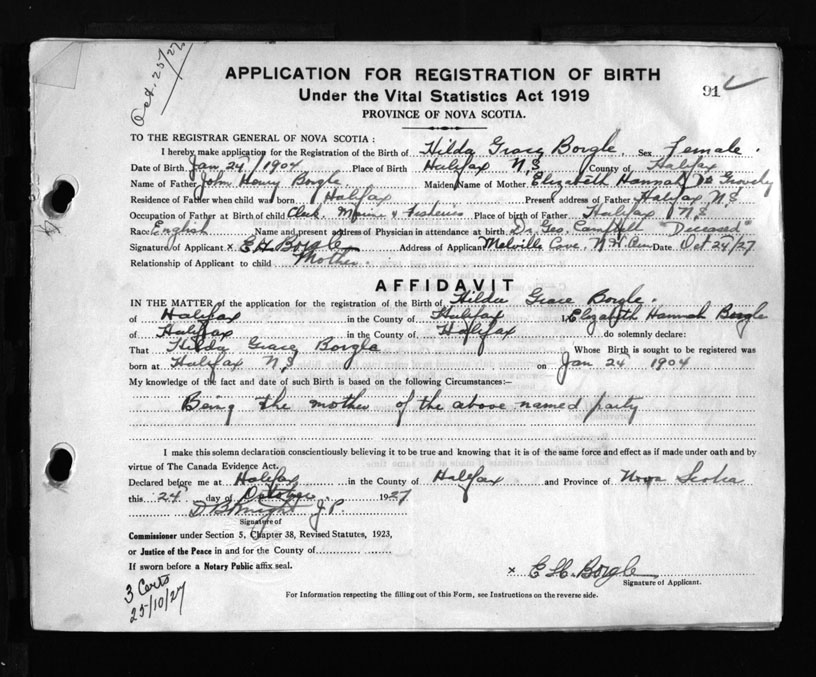 Oct. 25/27
APPLICATION FOR REGISTRATION OF BIRTH
91
Under the Vital Statistics Act 1919
PROVINCE OF NOVA SCOTIA.
TO THE REGISTRAR GENERAL OF NOVA SCOTIA :
I hereby make application for the Registration of the Birth of Hilda Gracy Borgle. Sex Female.
Date of Birth Jan 24/1904 Place of Birth Halifax N.S County of Halifax
Name of Father John Henry Borgle Maiden Name of Mother Elizabeth Hannah
Residence of Father when child was born Halifax Present address of Father Halifax N.S
Occupation of Father at Birth of child Clerk, Marine & Fisheries Place of birth of Father Halifax N.S
Race English Name and present address of Physician in attendance at birth Dr. Geo. Campbell "Deceased"
Signature of Applicant x E H Borgle Address of Applicant Melville Cove, N.W. Date Oct 24/27
Relationship of Applicant to child Mother.
AFFIDAVIT
IN THE MATTER of the application for the registration of the Birth of Hilda Grace Borgle.
of Halifax in the County of Halifax I, Elizabeth Hannah Borgle
of Halifax in the County of Halifax do solemnly declare:
That Hilda Gracy Borgle Whose Birth is sought to be registered was
born at Halifax N.S on Jan 24 1904
My knowledge of the fact and date of such Birth is based on the following Circumstances:—
Being the mother of the above named party
I make this solemn declaration conscientiously believing it to be true and knowing that it is of the same force and effect as if made under oath and by
virtue of The Canada Evidence Act.
Declared before me at Halifax in the County of Halifax and Province of Nova Scotia
this 24 day of October 1927
J.P.
Signature of
Commissioner under Section 5, Chapter 38, Revised Statutes, 1923,
or Justice of the Peace in and for the County of
If sworn before a Notary Public affix seal.
x E H. Borgle
Signature of Applicant.
3 Certs
25/10/27
For Information respecting the filling out of this Form, see Instructions on the reverse side.